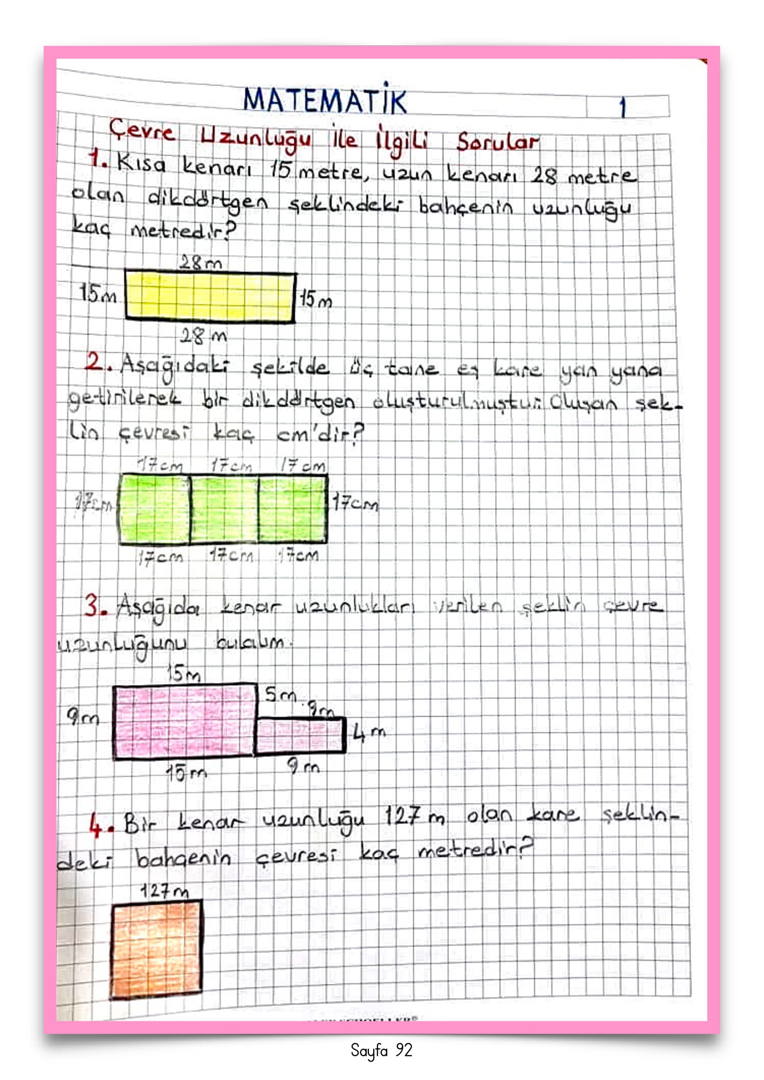 MATEMATİK
1
Çevre Uzunluğu İle İlgili Sorular
1. Kısa kenarı 15 metre, uzun kenarı 28 metre
olan dikdörtgen şeklindeki bahçenin uzunluğu
kaç metredir?
28m
15m
15m
28 m
2. Aşağıdaki şekilde üç tane eş kare yan yana
getirilerek bir dikdörtgen oluşturulmuştur. Oluşan şek-
lin çevresi kaç cm'dir?
17cm 17cm 17cm
17cm
17cm
17cm 17cm 17cm
3. Aşağıda kenar uzunlukları verilen şeklin çevre
uzunluğunu bulalım.
15m
5m
9m
9m
4m
15m
9m
4. Bir kenar uzunluğu 127 m olan kare şeklin-
deki bahçenin çevresi kaç metredir?
127m
Sayfa 92